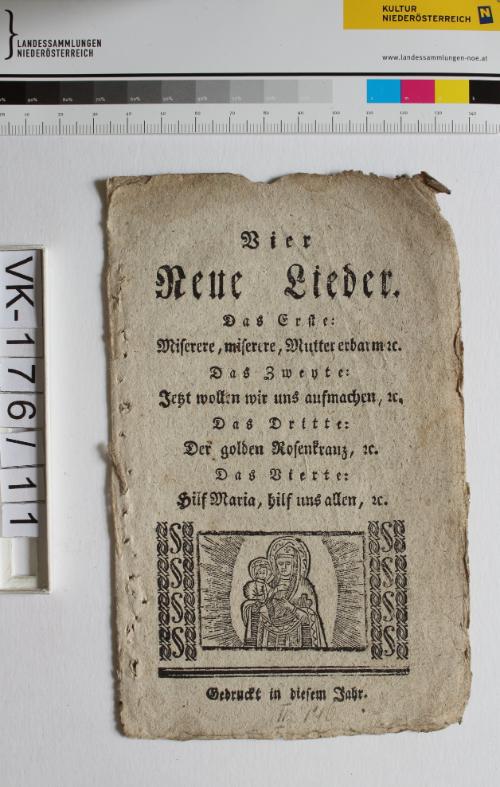 LANDESSAMMLUNGEN
NIEDERÖSTERREICH
KULTUR
NIEDERÖSTERREICH
www.landessammlungen-noe.at
VK-176/11
Vier
Neue Lieder.
Das Erste:
Miserere, miserere, Mutter erbarm ꝛc.
Das Zweyte:
Jetzt wollen wir uns aufmachen, ꝛc.
Das Dritte:
Der golden Rosenkranz, ꝛc.
Das Vierte:
Hilf Maria, hilf uns allen, ꝛc.
Gedruckt in diesem Jahr.